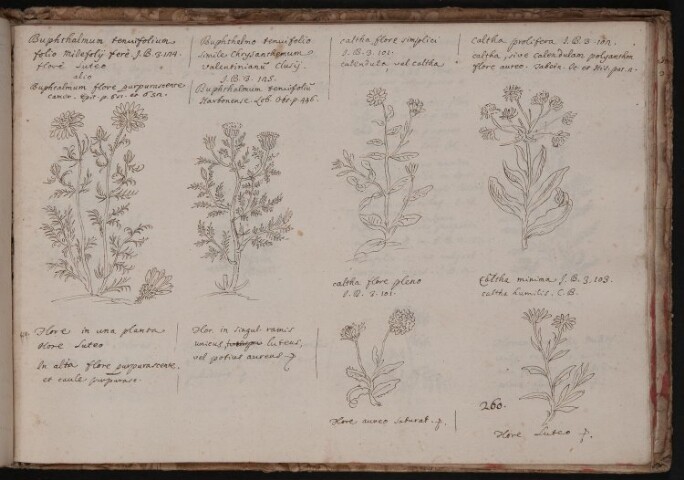 Buphthalmum tenuifolium
folio Milefolij ferè J.B.3.124.
flore Luteo
alio
Buphtalmum flore purpurascente
p. 652.
Buphthalmo tenuifolio
simile Chrysanthemum
valentinianū Clusij.
J.B.3.125.
Buphthalmum tenuifoliū
Narbonense Lob. Obs. p. 446.
caltha flore simplici
J.B.3.101.
calendula, vel caltha
caltha prolifera J.B.3.102.
caltha sive calendulam polyanthem
flore aureo.
caltha flore pleno
J.B.3.101.
Chltha minima J.B.3.103.
caltha humilis. C.B.
Flore in una planta
flore Luteo.
In alta flore purpurascente,
et caule purpureo.
Flor. in singul. ramis
unicus luteus,
vel potius aureus
flore aureo saturat.
260.
Flore Luteo